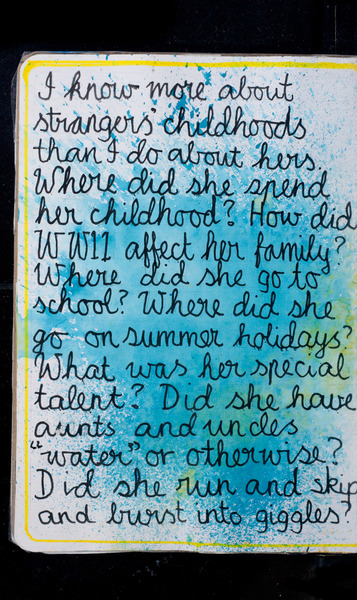 I know more about
strangers' childhoods
than I do about hers.
Where did she spend
her childhood? How did
WWII affect her family?
Where did she go to
school? Where did she
go on summer holidays?
What was her special
talent? Did she have
aunts and uncles
"water" or otherwise?
Did she run and skip
and burst into giggles?